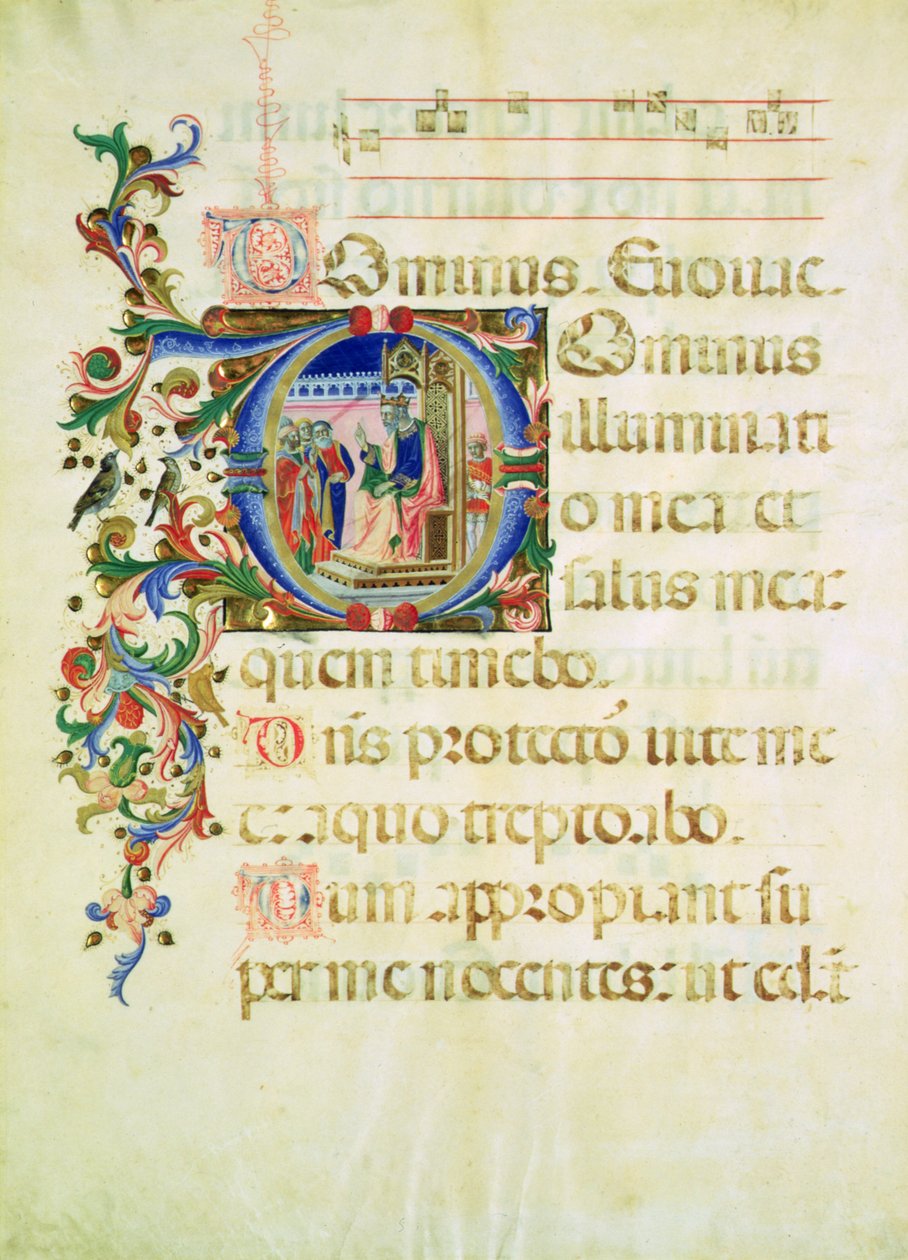 DOminus. Euouae.
DOminus
illuminati
o mea et
ſalus mea:
quem timebo.
Dñs protecto᷑ uite me
e: a quo trepidabo.
Dum appropiant ſu
per me nocentes: ut edāt